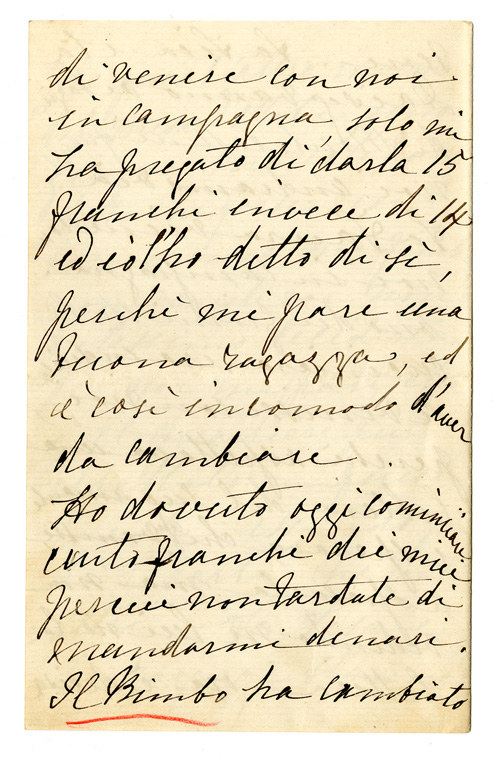 di venire con noi
in campagna, solo mi
ha pregato di darla 15
franchi invece di 14
ed io l'ho detto di sì,
perchè mi pare una
buona ragazza, ed
è così incomodo d'aver
da cambiare.
Ho dovuto oggi cominciare
cento franchi dei miei
percui non tardate di
mandarmi denari.
Il Bimbo ha cambiato